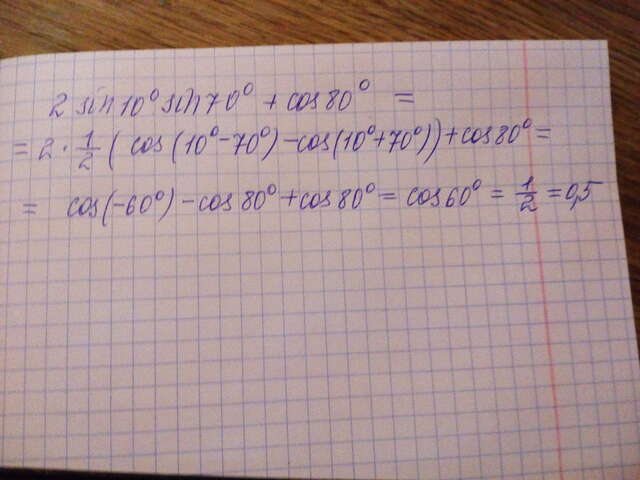 2 sin 10° sin 70° + cos 80° =
= 2 · 1/2 ( cos (10° - 70°) - cos (10° + 70°)) + cos 80° =
= cos(-60°) - cos 80° + cos 80° = cos 60° = 1/2 = 0,5